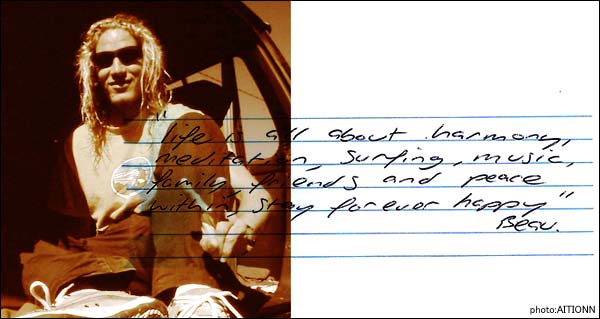 "life is all about harmony,
meditation, surfing, music,
family, friends and peace
within stay forever happy"
Beau.
photo:AITIONN